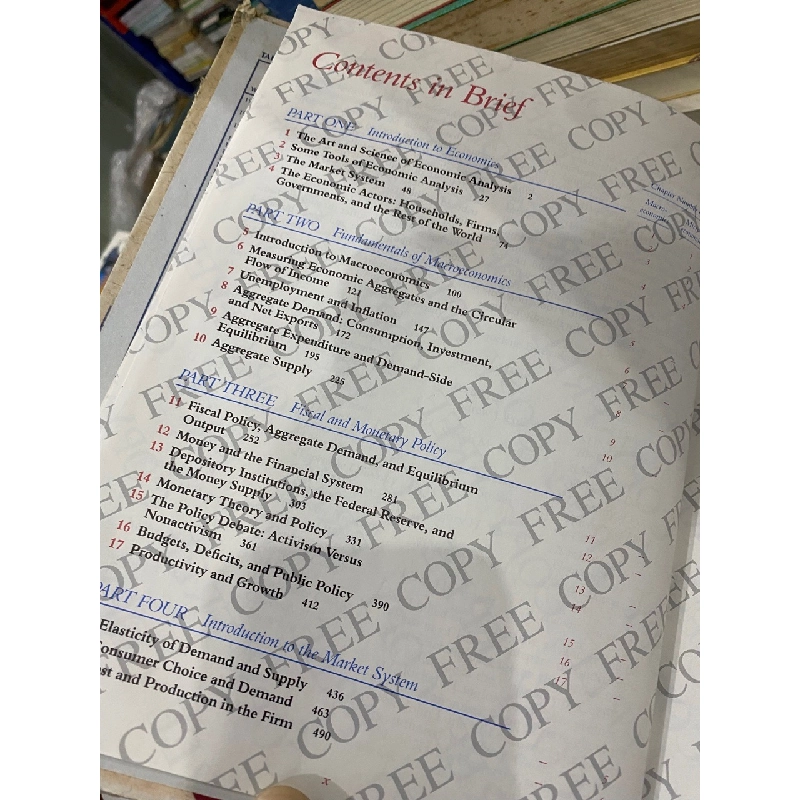 Contents in Brief
PART ONE Introduction to Economics
1 The Art and Science of Economic Analysis 2
2 Some Tools of Economic Analysis 27
3 The Market System 48
4 The Economic Actors: Households, Firms,
Governments, and the Rest of the World 74
PART TWO Fundamentals of Macroeconomics
5 Introduction to Macroeconomics 100
6 Measuring Economic Aggregates and the Circular
Flow of Income 121
7 Unemployment and Inflation 147
8 Aggregate Demand: Consumption, Investment,
and Net Exports 172
9 Aggregate Expenditure and Demand-Side
Equilibrium 195
10 Aggregate Supply 225
PART THREE Fiscal and Monetary Policy
11 Fiscal Policy, Aggregate Demand, and Equilibrium
Output 252
12 Money and the Financial System 281
13 Depository Institutions, the Federal Reserve, and
the Money Supply 303
14 Monetary Theory and Policy 331
15 The Policy Debate: Activism Versus
Nonactivism 361
16 Budgets, Deficits, and Public Policy 390
17 Productivity and Growth 412
PART FOUR Introduction to the Market System
Elasticity of Demand and Supply 436
onsumer Choice and Demand 463
st and Production in the Firm 490
x
FREE COPY FREE COPY FREE COPY
Chapter
Macro-
9
10
11
12
13
14
15
16
17